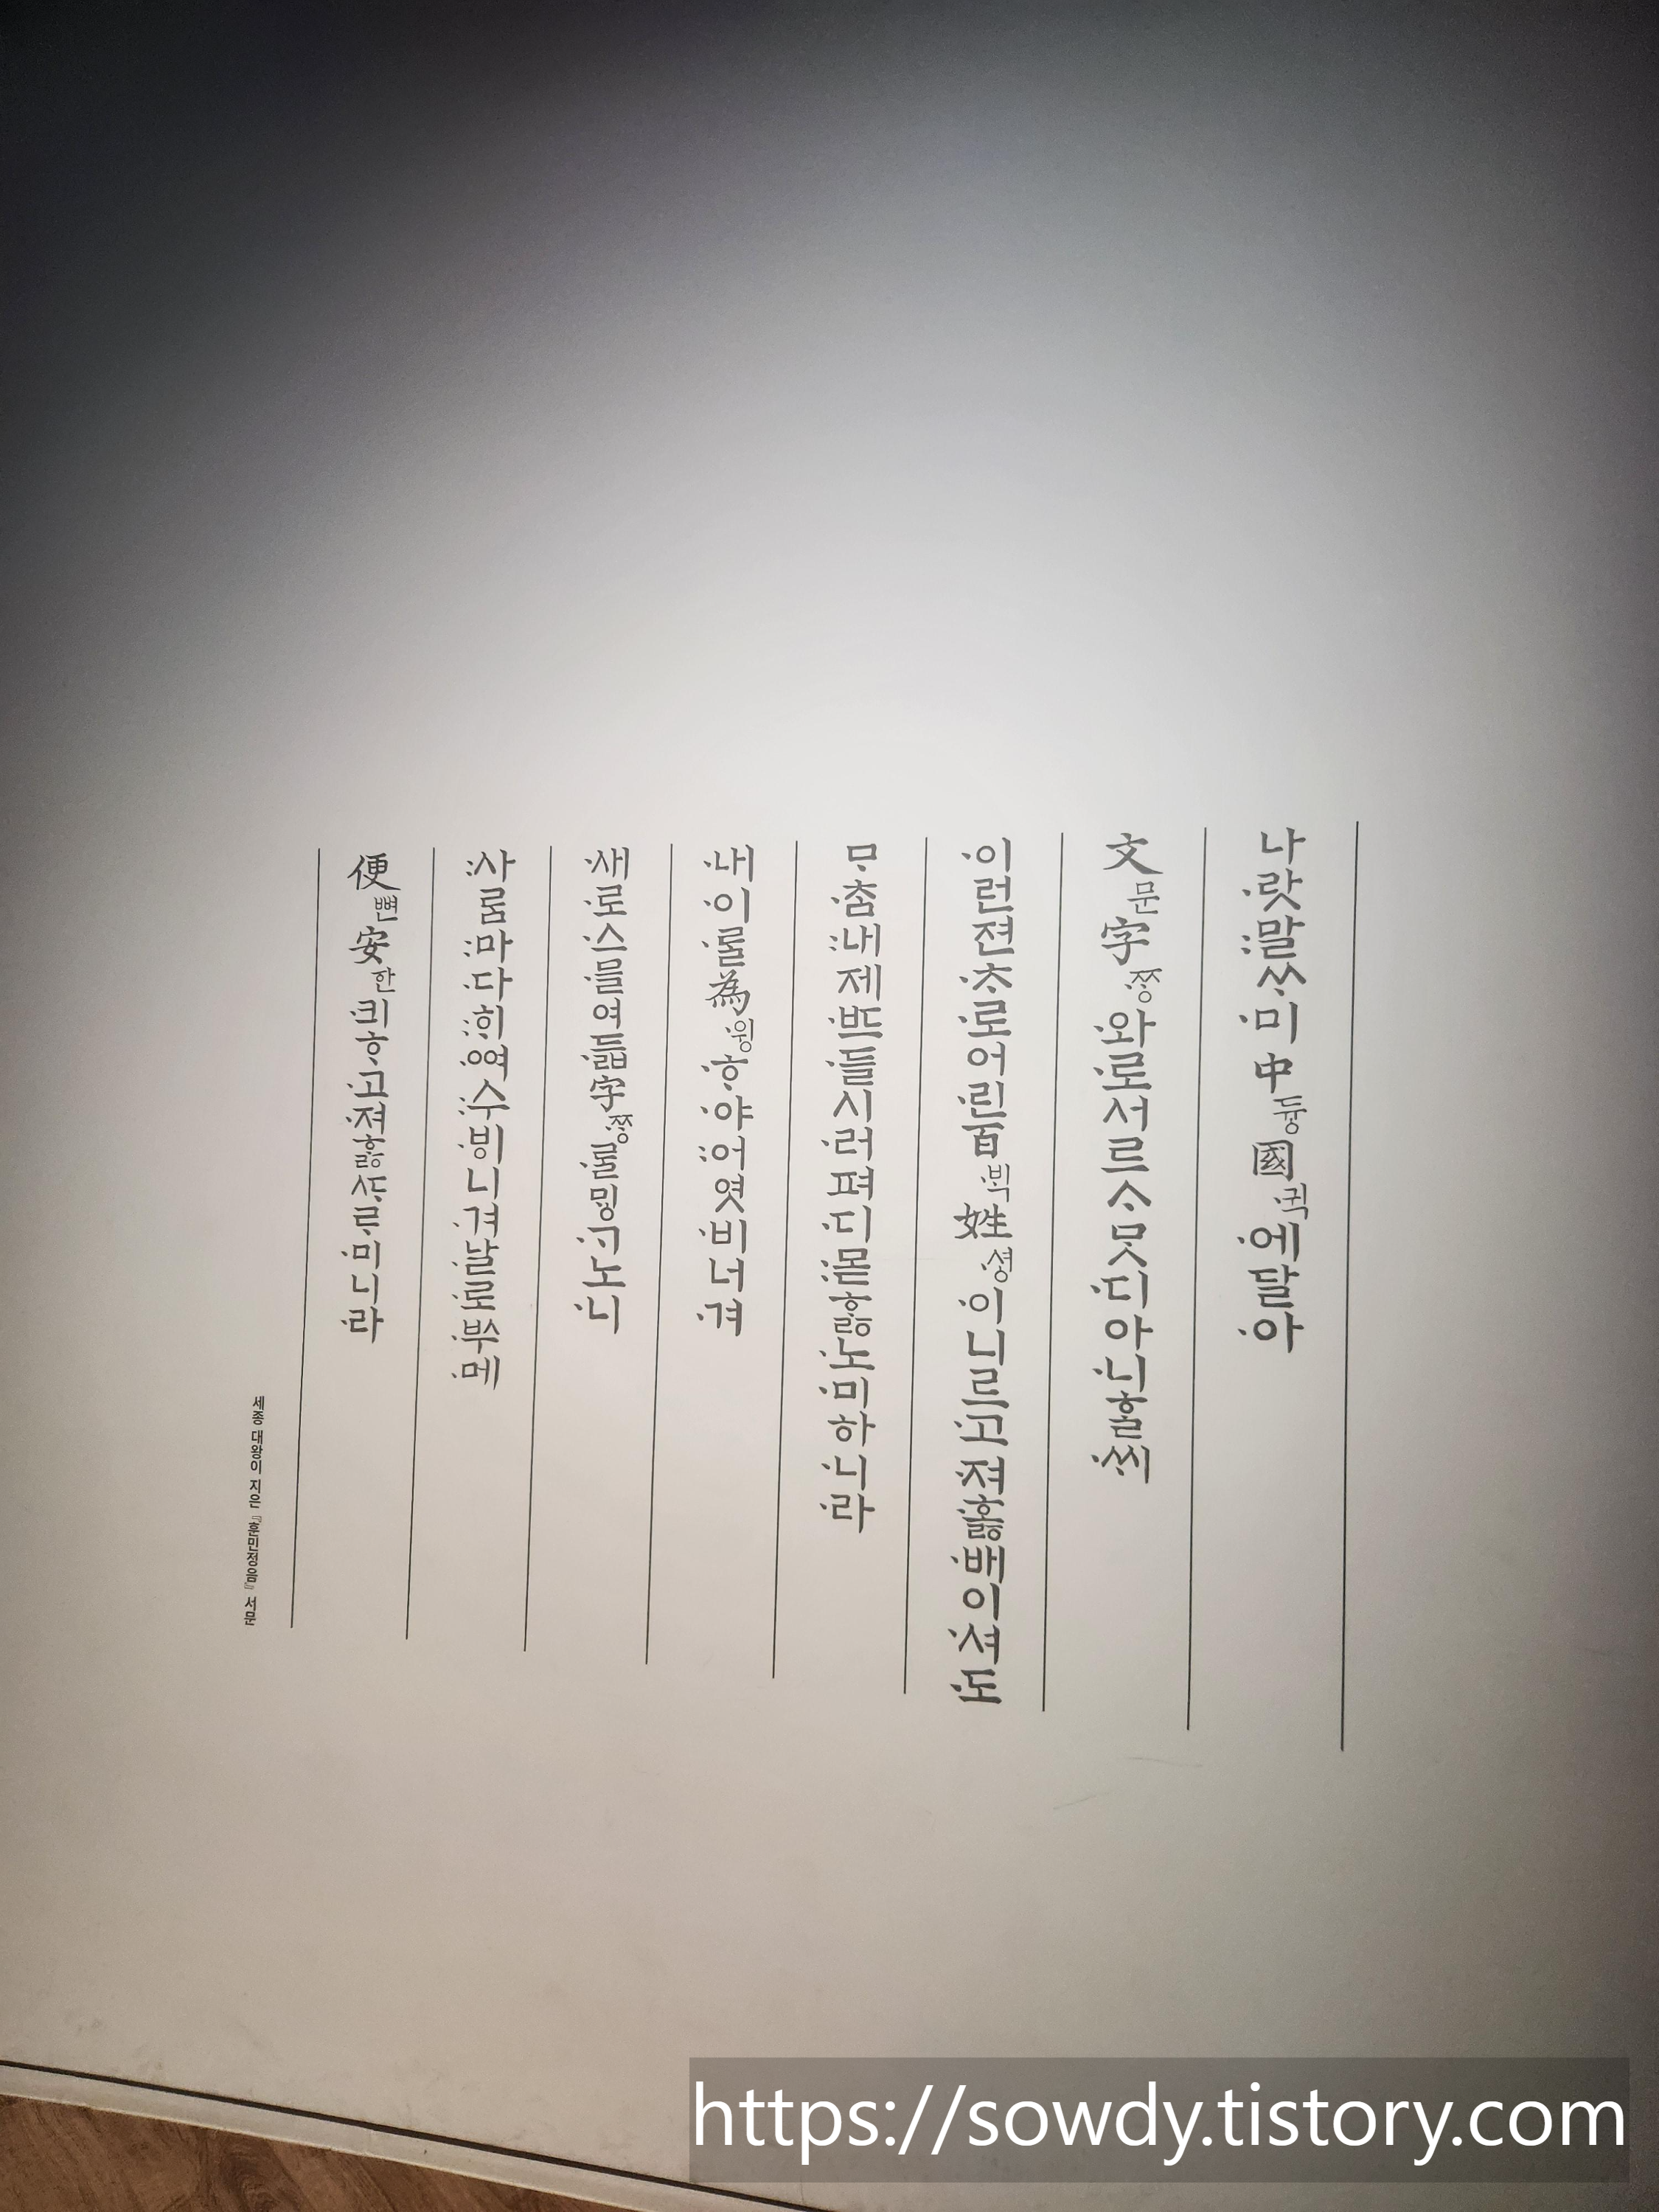 나·랏:말ᄊᆞ·미 中듕國·귁·에달·아
文문字·ᄍᆞᆼ·와·로서르ᄉᆞᄆᆞᆺ·디아·니ᄒᆞᆯ·ᄊᆡ
·이런젼·ᄎᆞ·로어·린百·ᄇᆡᆨ姓·셩·이니르·고·져·호ᇙ·배이·셔·도
ᄆᆞ·ᄎᆞᆷ:내제·ᄠᅳ·들시·러펴·디:몯ᄒᆞᇙ·노·미하·니·라
·내·이·ᄅᆞᆯ為·윙·ᄒᆞ·야:어엿·비너·겨
·새·로·스·믈여·듧字·ᄍᆞᆼ·ᄅᆞᆯᄆᆡᆼ·ᄀᆞ노·니
:사ᄅᆞᆷ:마·다:ᄒᆡ·ᅇᅧ:수·ᄫᅵ니·겨·날·로·ᄡᅮ·메
便뼌安한·킈ᄒᆞ·고·져ᄒᆞᇙᄯᆞᄅᆞ·미니·라
세종 대왕이 지은 『훈민정음』 서문
https://sowdy.tistory.com